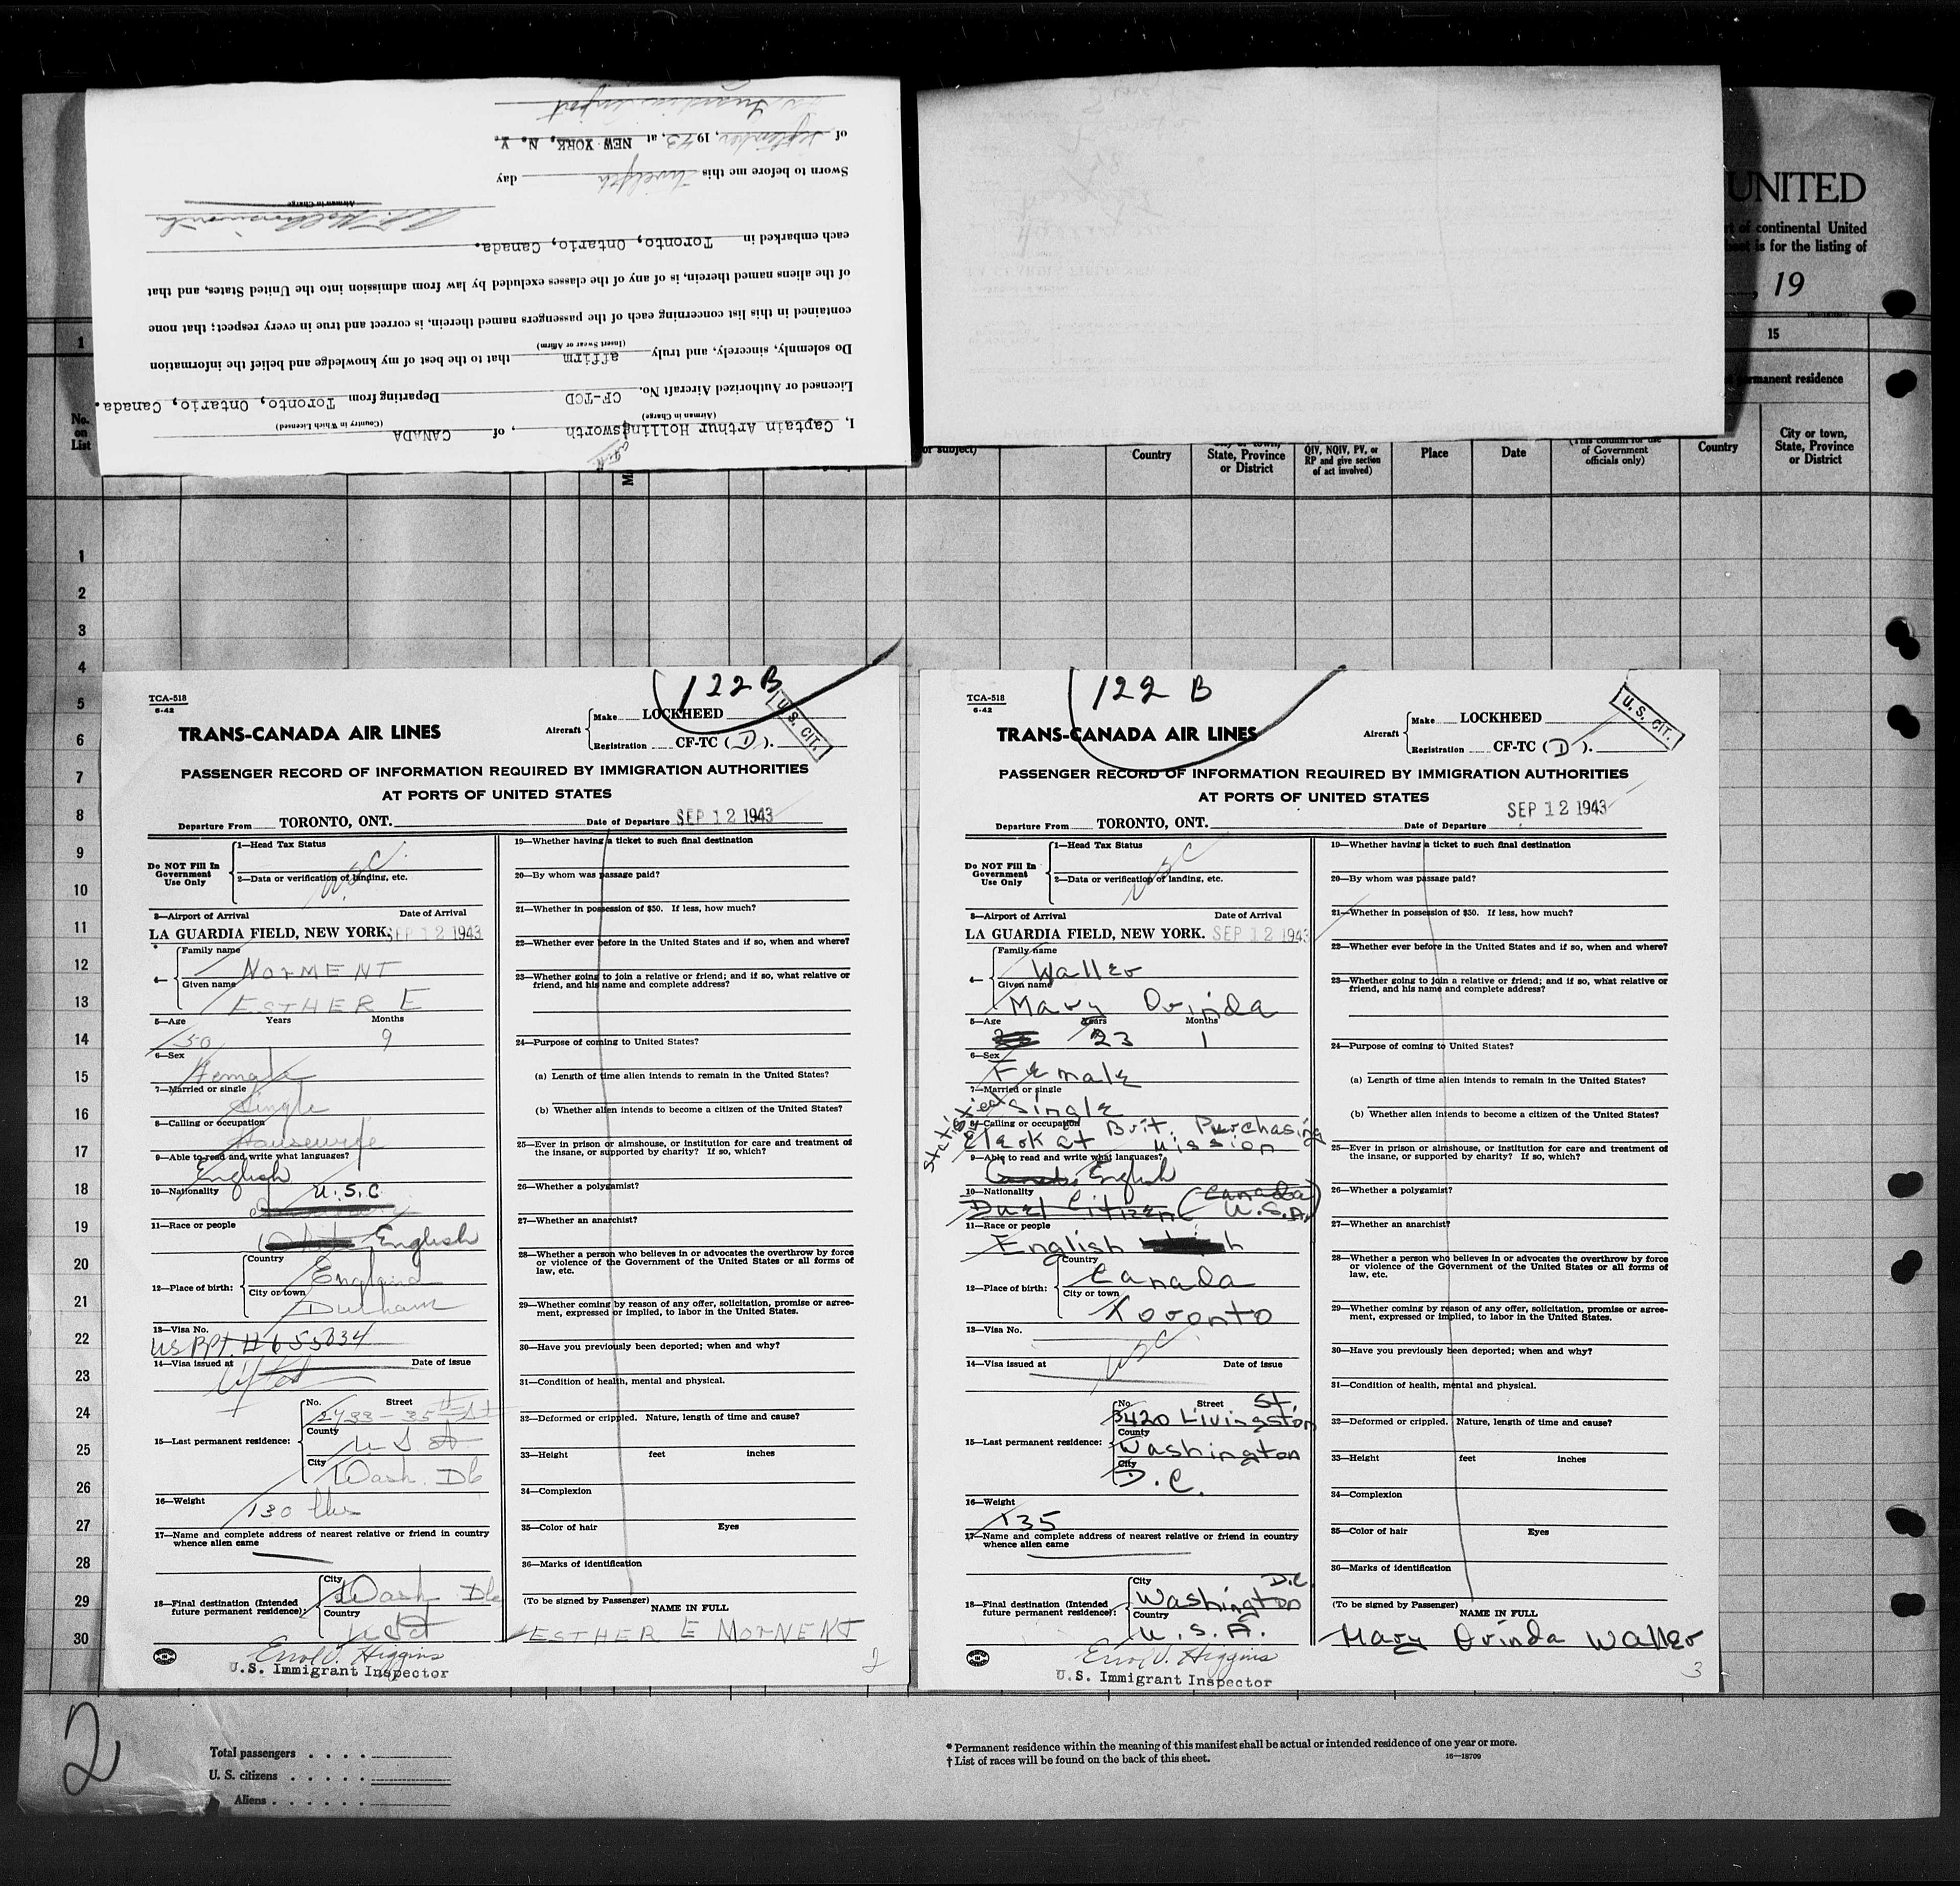 I, Captain Arthur Hollingsworth, of CANADA
(Airman in Charge) (Country in Which Licensed)
Licensed or Authorized Aircraft No. CF-TCD Departing from Toronto, Ontario, Canada.
Do solemnly, sincerely, and truly affirm that to the best of my knowledge and belief the information
(Insert Swear or Affirm)
contained in this list concerning each of the passengers named therein, is correct and true in every respect; that none
of the aliens named therein, is of any of the classes excluded by law from admission into the United States, and that
each embarked in Toronto, Ontario, Canada.
Airman in Charge
Sworn to before me this Twelfth day
of September, 1943, at NEW YORK, N. Y.
UNITED
of continental United
is for the listing of
, 19
1
15
permanent residence
No.
on
List
or subject)
Country
City or town,
State, Province
or District
QIV, NQIV, PV, or
RP and give section
of act involved)
Place
Date
(This column for use
of Government
officials only)
Country
City or town,
State, Province
or District
1
2
3
4
5
6
7
8
9
10
11
12
13
14
15
16
17
18
19
20
21
22
23
24
25
26
27
28
29
30
122 B
TCA-518
6-42
TRANS-CANADA AIR LINES
Aircraft
Make LOCKHEED
Registration CF-TC (D).
U. S. CIT.
PASSENGER RECORD OF INFORMATION REQUIRED BY IMMIGRATION AUTHORITIES
AT PORTS OF UNITED STATES
Departure From TORONTO, ONT. Date of Departure SEP 12 1943
Do NOT Fill In
Government
Use Only
1—Head Tax Status
USC
2—Data or verification of landing, etc.
3—Airport of Arrival Date of Arrival
LA GUARDIA FIELD, NEW YORK. SEP 12 1943
4—
Family name
NORMENT
Given name
ESTHER E
5—Age Years Months
50 9
6—Sex
Female
7—Married or single
Single
8—Calling or occupation
Housewife
9—Able to read and write what languages?
English
10—Nationality
U.S.C
11—Race or people
English
12—Place of birth:
Country
England
City or town
Durham
13—Visa No.
US PPt. # 655034
14—Visa issued at Date of issue
15—Last permanent residence:
No. Street
2433 - 35th St
County
USA
City
Wash. DC
16—Weight
130 lbs
17—Name and complete address of nearest relative or friend in country
whence alien came
18—Final destination (Intended
future permanent residence):
City
Wash DC
Country
USA
Errol J. Higgins
U.S. Immigrant Inspector
19—Whether having a ticket to such final destination
20—By whom was passage paid?
21—Whether in possession of $50. If less, how much?
22—Whether ever before in the United States and if so, when and where?
23—Whether going to join a relative or friend; and if so, what relative or
friend, and his name and complete address?
24—Purpose of coming to United States?
(a) Length of time alien intends to remain in the United States?
(b) Whether alien intends to become a citizen of the United States?
25—Ever in prison or almshouse, or institution for care and treatment of
the insane, or supported by charity? If so, which?
26—Whether a polygamist?
27—Whether an anarchist?
28—Whether a person who believes in or advocates the overthrow by force
or violence of the Government of the United States or all forms of
law, etc.
29—Whether coming by reason of any offer, solicitation, promise or agree-
ment, expressed or implied, to labor in the United States.
30—Have you previously been deported; when and why?
31—Condition of health, mental and physical.
32—Deformed or crippled. Nature, length of time and cause?
33—Height feet inches
34—Complexion
35—Color of hair Eyes
36—Marks of identification
(To be signed by Passenger)
NAME IN FULL
ESTHER E NORMENT
2
122 B
TCA-518
6-42
TRANS-CANADA AIR LINES
Aircraft
Make LOCKHEED
Registration CF-TC (D).
U. S. CIT.
PASSENGER RECORD OF INFORMATION REQUIRED BY IMMIGRATION AUTHORITIES
AT PORTS OF UNITED STATES
Departure From TORONTO, ONT. Date of Departure SEP 12 1943
Do NOT Fill In
Government
Use Only
1—Head Tax Status
USC
2—Data or verification of landing, etc.
3—Airport of Arrival Date of Arrival
LA GUARDIA FIELD, NEW YORK. SEP 12 1943
4—
Family name
Waller
Given name
Mary Orinda
5—Age Years Months
23 1
6—Sex
Female
7—Married or single
Single
8—Calling or occupation
Statistical Clerk at Brit. Purchasing
Mission
9—Able to read and write what languages?
English
10—Nationality
Dual Citizen (Canada)
U.S.A.
11—Race or people
English
12—Place of birth:
Country
Canada
City or town
Toronto
13—Visa No.
USC
14—Visa issued at Date of issue
15—Last permanent residence:
No. Street
3420 Livingston St.
County
Washington
City
D.C.
16—Weight
135
17—Name and complete address of nearest relative or friend in country
whence alien came
18—Final destination (Intended
future permanent residence):
City
Washington D.C.
Country
U.S.A.
Errol J. Higgins
U.S. Immigrant Inspector
19—Whether having a ticket to such final destination
20—By whom was passage paid?
21—Whether in possession of $50. If less, how much?
22—Whether ever before in the United States and if so, when and where?
23—Whether going to join a relative or friend; and if so, what relative or
friend, and his name and complete address?
24—Purpose of coming to United States?
(a) Length of time alien intends to remain in the United States?
(b) Whether alien intends to become a citizen of the United States?
25—Ever in prison or almshouse, or institution for care and treatment of
the insane, or supported by charity? If so, which?
26—Whether a polygamist?
27—Whether an anarchist?
28—Whether a person who believes in or advocates the overthrow by force
or violence of the Government of the United States or all forms of
law, etc.
29—Whether coming by reason of any offer, solicitation, promise or agree-
ment, expressed or implied, to labor in the United States.
30—Have you previously been deported; when and why?
31—Condition of health, mental and physical.
32—Deformed or crippled. Nature, length of time and cause?
33—Height feet inches
34—Complexion
35—Color of hair Eyes
36—Marks of identification
(To be signed by Passenger)
NAME IN FULL
Mary Orinda Waller
3
2
Total passengers
U. S. citizens
Aliens
* Permanent residence within the meaning of this manifest shall be actual or intended residence of one year or more.
† List of races will be found on the back of this sheet.
16—18709